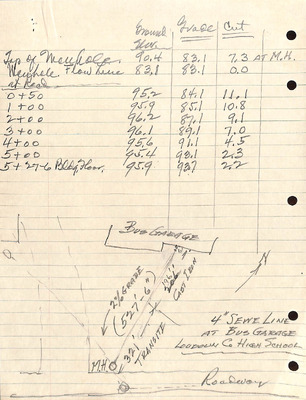 Ground Grade Cut
Elev.
Top of Manhole 90.4 83.1 7.3 AT M.H.
Manhole Flow Line 83.1 83.1 0.0
at Road
0+50 95.2 84.1 11.1
1+00 95.9 85.1 10.8
2+00 96.2 87.1 9.1
3+00 96.1 89.1 7.0
4+00 95.6 91.1 4.5
5+00 95.4 93.1 2.3
5+27-6 Bldg Floor. 95.9 93.7 2.2
BUS GARAGE
2% GRADE
(527'-6")
CAST IRON
321' TRANSITE
M.H.
4" SEWE LINE
AT BUS GARAGE
LOUDOUN CO HIGH SCHOOL
Roadway